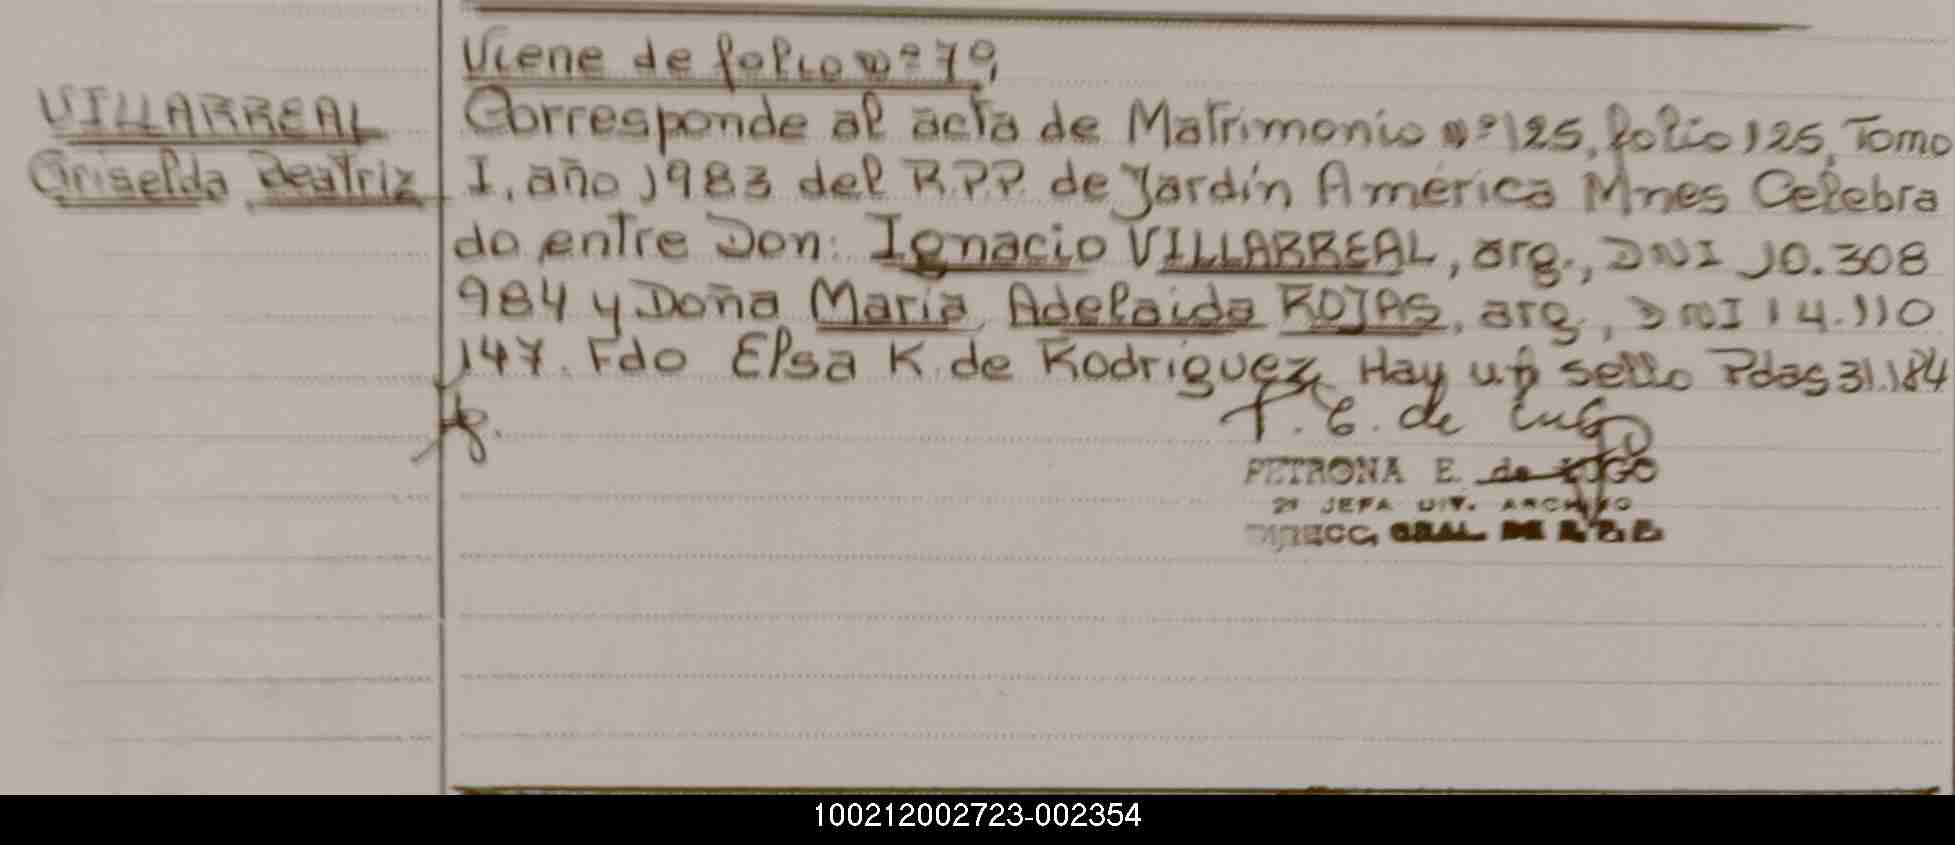 Viene de folio nº 79
VILLARREAL
Griselda Beatriz
Corresponde al acta de Matrimonio nº 125, folio 125, Tomo
I, año 1983 del R.P.P. de Jardín América Mnes Celebra
do entre Don: Ignacio VILLARREAL, arg., DNI 10.308
984 y Doña María Adelaida ROJAS, arg., DNI 14.110
147. Fdo Elsa K. de Rodriguez Hay un sello Pdas 31.184
P. E. de Lugo
PETRONA E. de LUGO
2º JEFA DIV. ARCHIVO
DIRECC. GRAL. DE R.
100212002723-002354